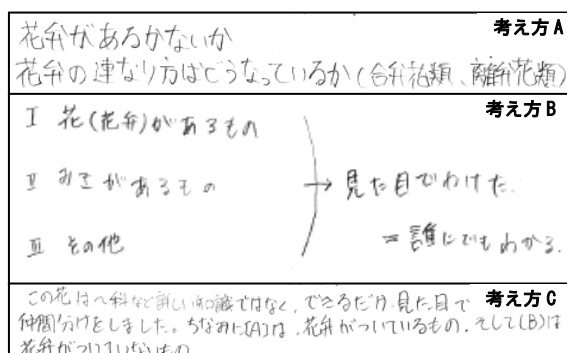 考え方A
花弁があるかないか
花弁の連なり方はどうなっているか(合弁花類、離弁花類)
考え方B
I 花(花弁)があるもの
II みきがあるもの
III その他
→ 見た目でわけた。
= 誰にでもわかる。
考え方C
この花は〜科など詳しい知識ではなく、できるだけ見た目で
仲間分けをしました。ちなみに(A)は、花弁がついているもの、そして(B)は
花弁がついていないもの